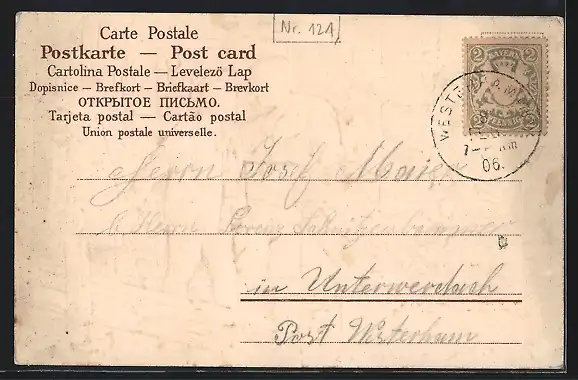 Nr. 121
Carte Postale
Postkarte — Post card
Cartolina Postale — Levelező Lap
Dopisnice — Brefkort — Briefkaart — Brevkort
ОТКРЫТОЕ ПИСЬМО.
Tarjeta postal — Cartão postal
Union postale universelle.
2 BAYERN 2
2 PFENNIG 2
06.
Herrn Josef Maier
Herrn
in Unterwerdach
Post Westerham